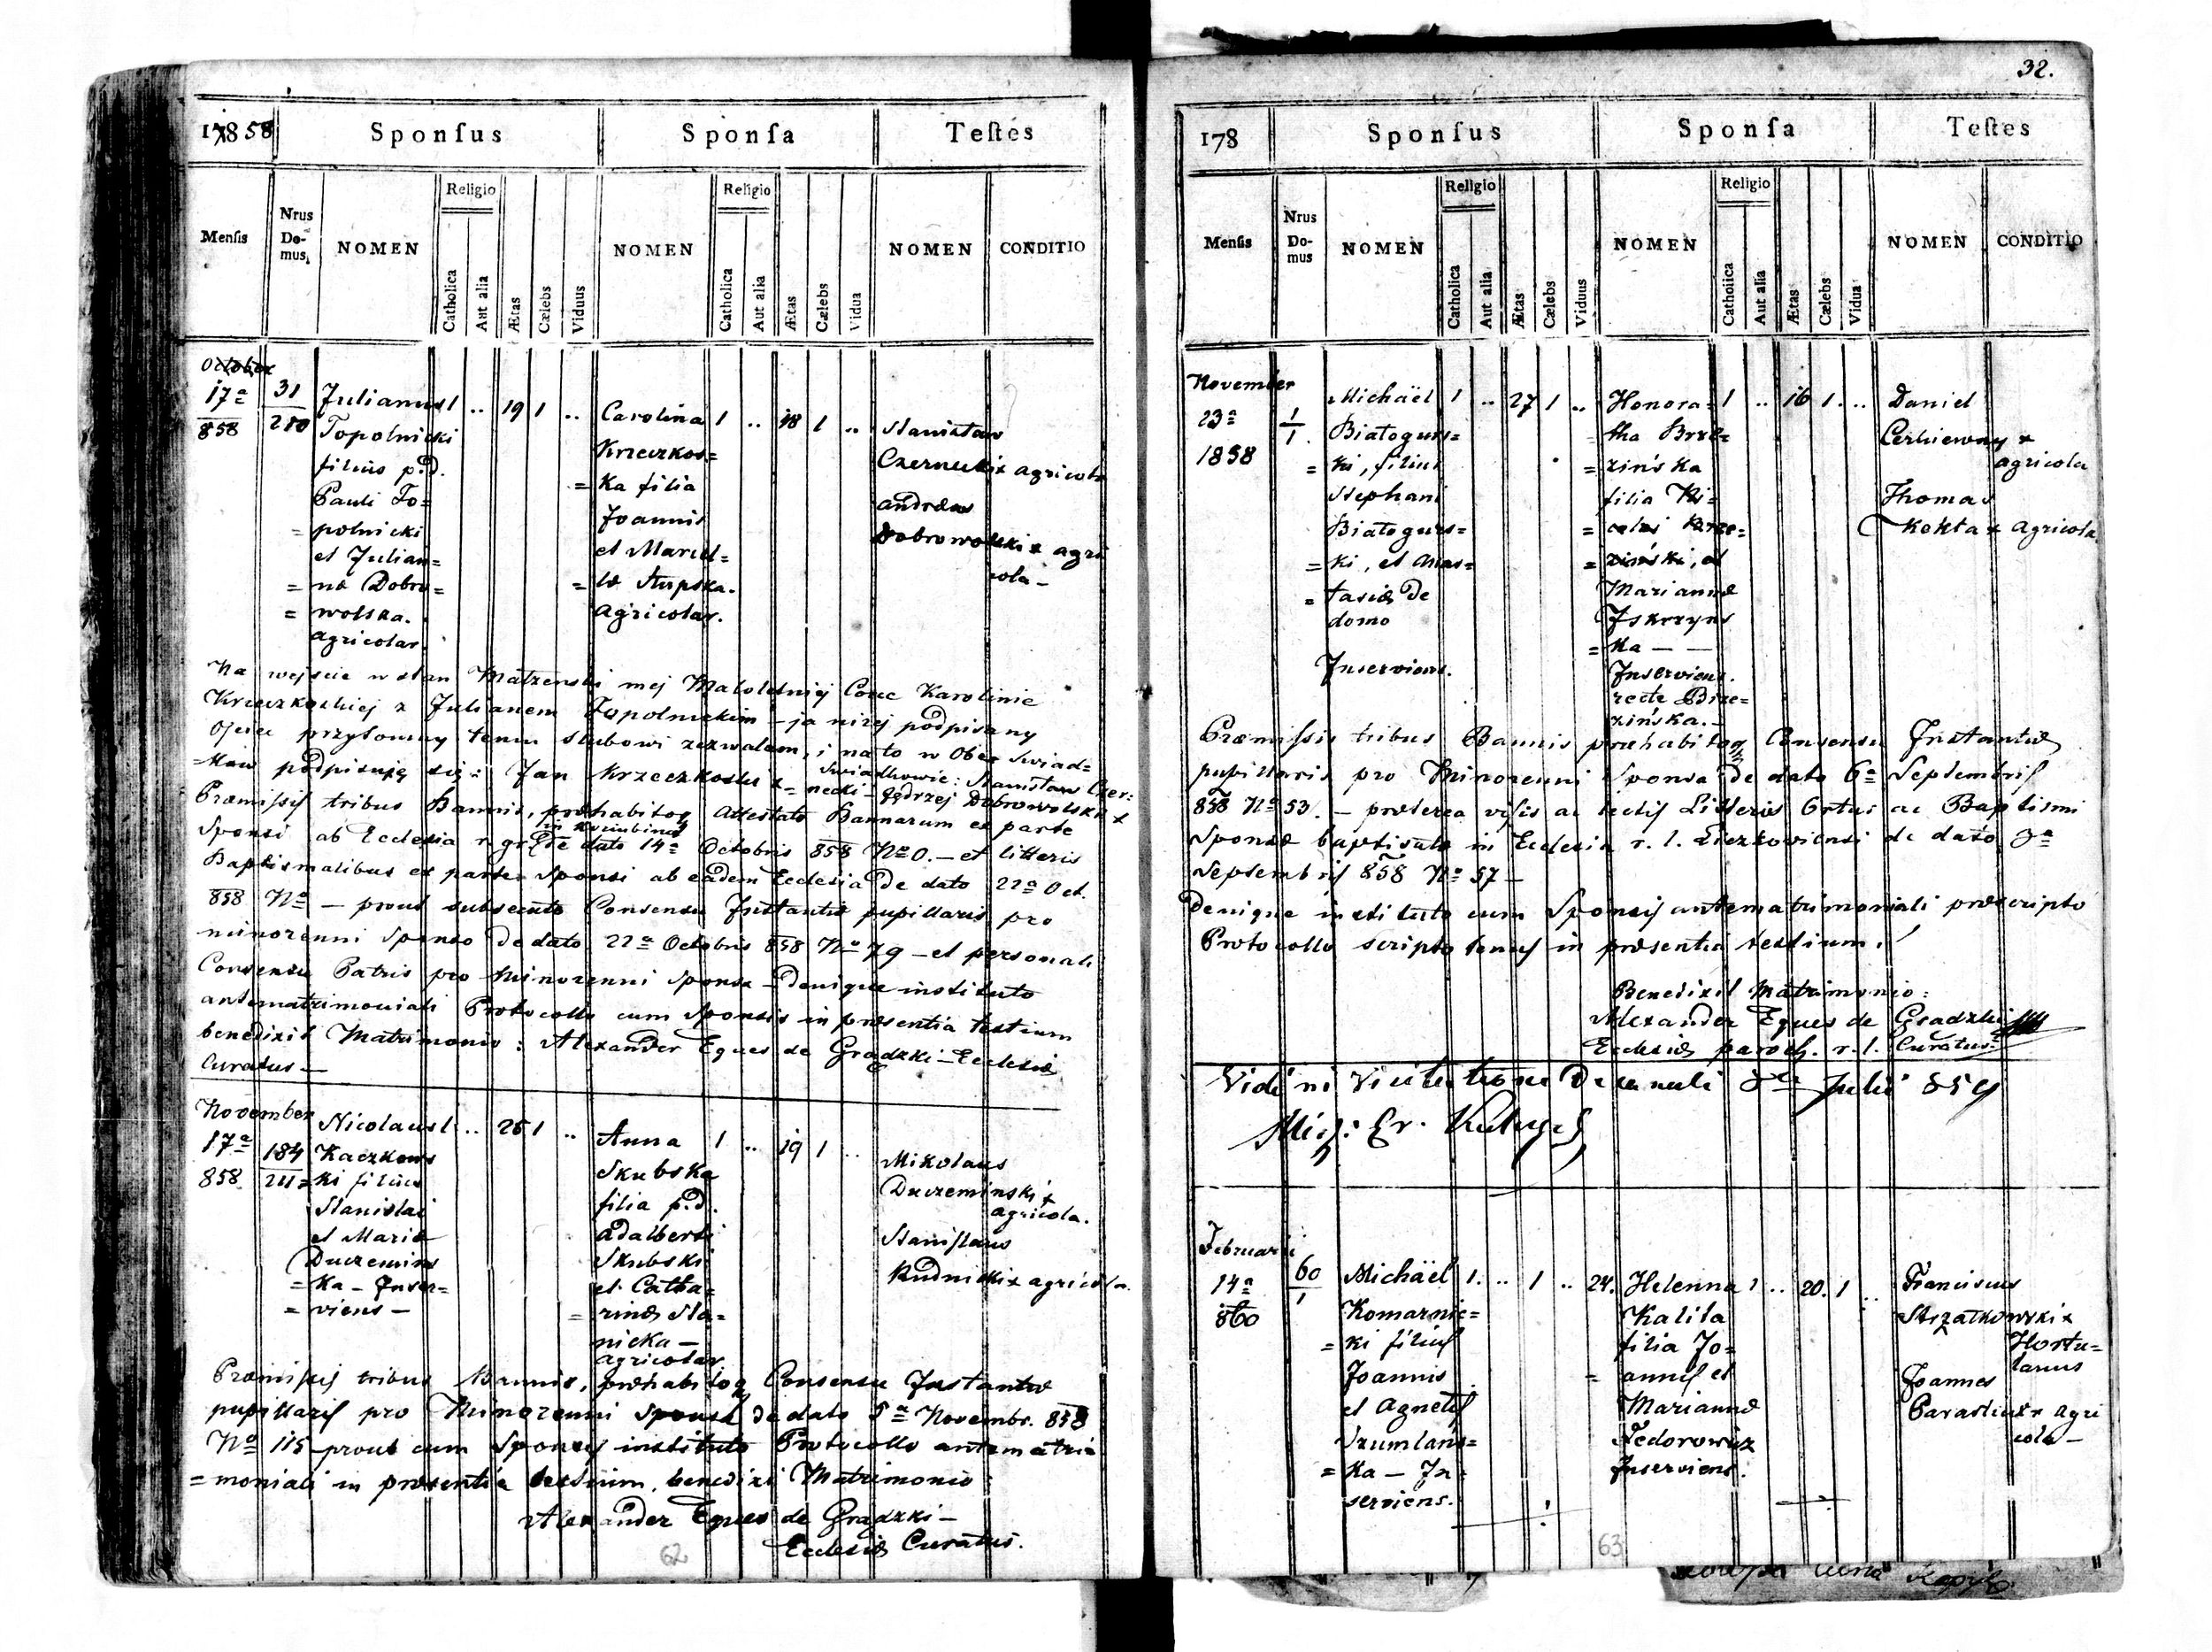 17858
Sponſus
Sponſa
Teſtes
Menſis
Nrus Do-mus
NOMEN
Religio
Catholica
Aut alia
Ætas
Cælebs
Viduus
NOMEN
Religio
Catholica
Aut alia
Ætas
Cælebs
Vidua
NOMEN
CONDITIO
October
17ª
858
31
280
Julianus
Topolnicki
filius p.d.
Pauli To=
= polnicki
et Julian=
= næ Dobro=
= wolska.
agricolar.
1 .. 19 1 ..
Carolina
Krzeczkos=
= ka filia
Joannis
et Marcel=
= læ Słupska.
agricolar.
1 .. 18 1 ..
Stanisław
Czernecki x agricola
Andreas
Dobrowolski x agri
cola –
Na wejście w stan Małżenski mej Małoletniej Corce Karolinie
Krzeczkoskiej z Julianem Topolnickim – ja niżej podpisany
Ojciec przytomny temu slubowi zezwalam, i na to w obec swiad=
= kow podpisuję się: Jan Krzeczkoski x – Swiadkowie: Stanisław Czer=
necki – Jędrzej Dobrowolski x
Præmissis tribus Bannis, præhabitoq Attestato Bannorum ex parte
Sponsi ab Ecclesia r. gr. de dato 14ª Octobris 858 Nº 0. – et litteris
Baptismalibus ex parte Sponsi ab eadem Ecclesia de dato 22ª Oct.
858 Nº – prout subsecuto Consensu Instantiæ pupillaris pro
minorenni Sponso de dato 22ª Octobris 858 Nº 79 – et personali
Consensu Patris pro Minorenni Sponsa – denique instituto
antematrimoniali Protocollo cum Sponsis in præsentia testium
benedixit Matrimonio: Alexander Eques de Grądzki – Ecclesiæ
Curatus –
November
17ª
858
184
211
Nicolaus
Kaczkows
= ki filius
Stanislai
et Mariæ
Duczemins
= ka – Inser=
= viens –
1 .. 26 1 ..
Anna
Skubska
filia p.d.
Adalberti
Skubski
et Catha=
= rinæ Sla=
nicka –
agricolar.
1 .. 19 1 ..
Mikolaus
Duczeminski x
agricola.
Stanislaus
Rudnicki x agricola.
Præmissis tribus Bannis, præhabitoq Consensu Instantiæ
pupillaris pro Minorenni Sponsa de dato 5ª Novembr. 858
Nº 115 – prout cum Sponsis instituto Protocollo antematri=
= moniali in præsentia testium, benedixi Matrimonio:
Alexander Eques de Grądzki –
Ecclesiæ Curatus.
62
32.
178
Sponſus
Sponſa
Teſtes
Menſis
Nrus Do-mus
NOMEN
Religio
Catholica
Aut alia
Ætas
Cælebs
Viduus
NOMEN
Religio
Catholica
Aut alia
Ætas
Cælebs
Vidua
NOMEN
CONDITIO
November
23ª
1858
1
1.
Michäel
Białogurs=
= ki, filius
Stephani
Białogurs=
= ki, et Anas=
= tasiæ de
domo
Inserviens.
1 .. 27 1 ..
Honora=
= tha Brze=
= zińska
filia Ni=
= colai Brze=
= ziński, et
Mariannæ
Iskrzyns
= ka – –
Inserviens.
recte Brze=
zińska. –
1 .. 16 1. ..
Daniel
x
agricola
Thomas
Kokta x agricola
Præmissis tribus Bannis præhabitoq Consensu Instantiæ
pupillaris pro Minorenni Sponsa de dato 6ª Septembris
858 Nº 53. – præterea visis ac lectis Litteris Ortus ac Baptismi
Sponsæ baptisatæ in Ecclesia r. l. de dato 3ª
Septembris 858 Nº 57 –
Denique instituto cum Sponsis antematrimoniali præscripto
Protocollo scripto tenus in præsentia testium.
Benedixit Matrimonio:
Alexander Eques de Grądzki
Ecclesiæ paroch. r. l. Curatus
Vidi in Visitatione Decanali Julii 859
Februarii
14ª
860
60
1
Michäel
Komarnic=
= ki filius
Joannis
et Agnetis
Szumlans=
= ka – In=
serviens.
1. .. 1 .. 24.
Helenna
Kalita
filia Jo=
= annis et
Mariannæ
Fedorowicz
Inserviens.
1 .. 20. 1 ..
Franciscus
Strzałkowski x
Hortu=
lanus
Joannes
x agri
cola –
63